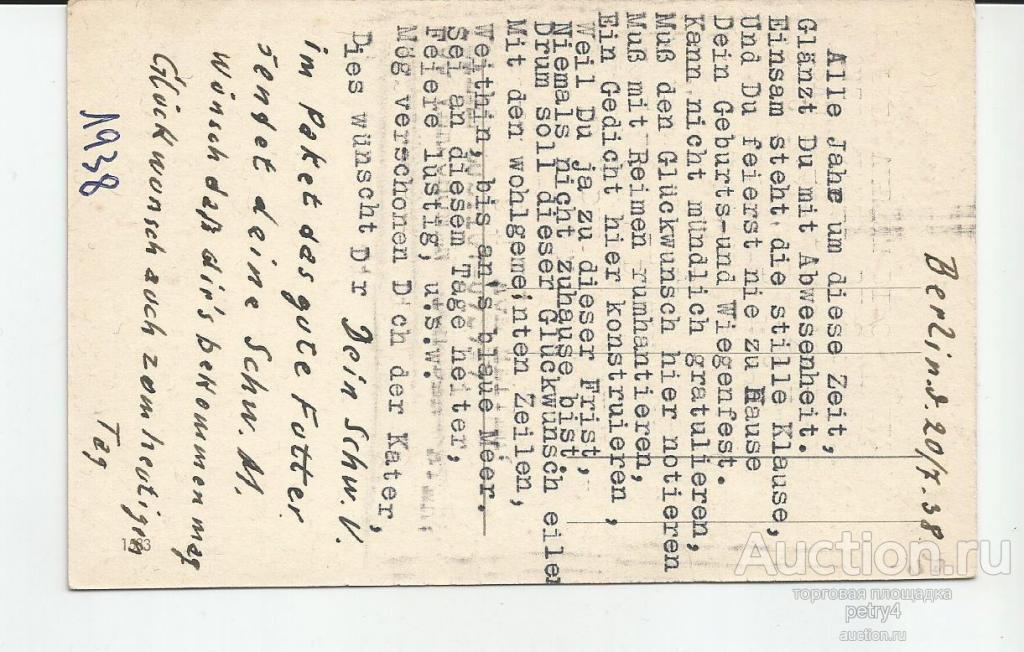 Berlin d. 20/7.38.
Alle Jahre um diese Zeit,
Glänzt Du mit Abwesenheit.
Einsam steht die stille Klause,
Und Du feierst nie zu Hause
Dein Geburts-und Wiegenfest.
Kann nicht mündlich gratulieren,
Muß den Glückwunsch hier notieren
Muß mit Reimen rumhantieren,
Ein Gedicht hier konstruieren,
Weil Du ja zu dieser Frist,
Niemals nicht zuhause bist.
Drum soll dieser Glückwunsch eilen
Mit den wohlgemeinten Zeilen,
Weithin, bis an's blaue Meer.
Sei an diesen Tage heiter,
Feiere lustig, u.s.w.
Mög verschonen Dich der Kater,
Dies wünscht Dir Dein Schw. V.
im Paket das gute Futter
sendet deine Schw. M.
wünsch daß dir's bekommen mag
Glückwunsch auch zum heutigen
Tag
1938
1533
Auction.ru
торговая площадка
petry4
auction.ru